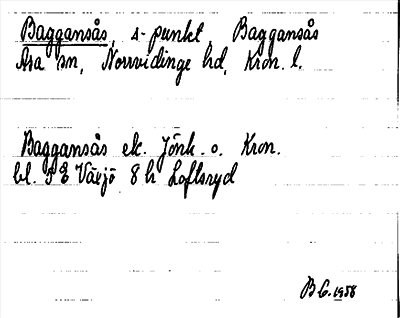 Baggansås, s-punkt, Baggansås
Asa sn, Norrvidinge hd, Kron. l.
Baggansås ek. Jönk. o. Kron.
bl. 5 E Växjö 8 h Loftsryd
B G. 1958